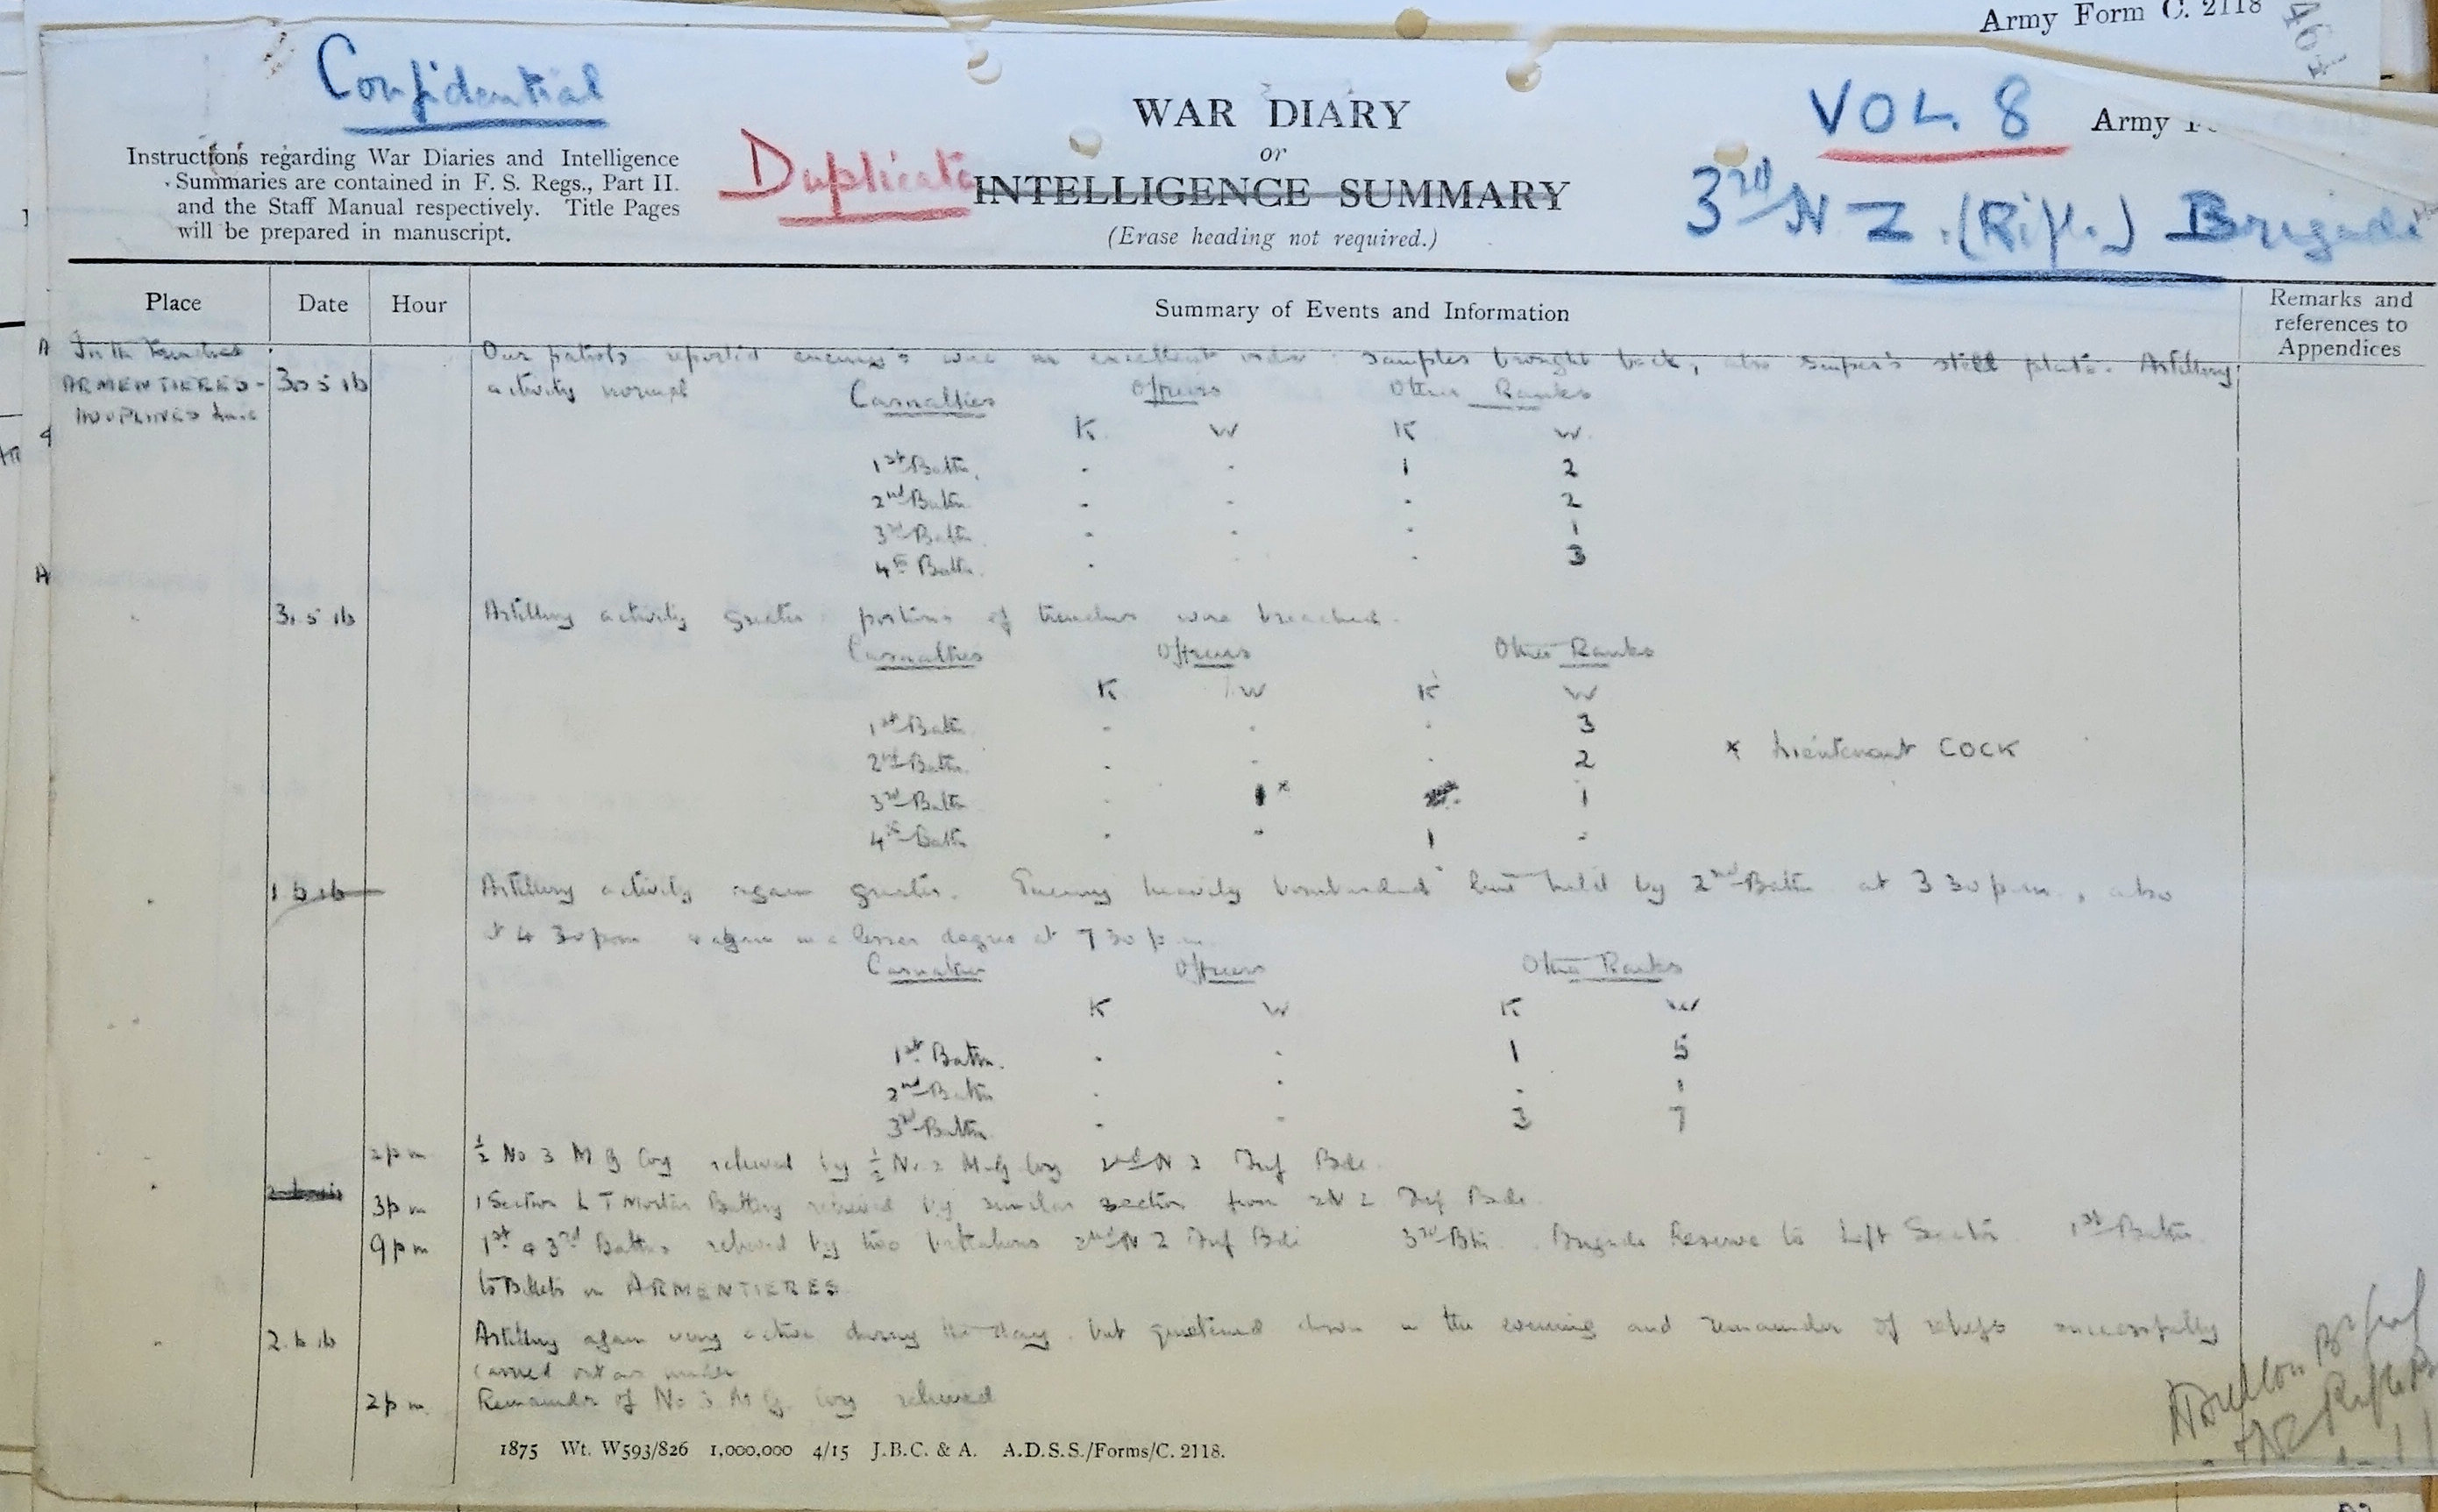 Army Form C. 2118
464
Confidential
WAR DIARY
VOL. 8
Army
Instructions regarding War Diaries and Intelligence
Summaries are contained in F. S. Regs., Part II.
and the Staff Manual respectively. Title Pages
will be prepared in manuscript.
Duplicate
or
INTELLIGENCE SUMMARY
(Erase heading not required.)
3rd N Z. (Rifle) Brigade
Place
Date
Hour
Summary of Events and Information
Remarks and
references to
Appendices
In the Trenches
Our patrols reported enemy's wire in excellent order. Samples brought back, also sniper's steel plate. Artillery
ARMENTIERES-
30 5 16
activity normal
Casualties Officers Other Ranks
HOUPLINES Line
K W K W
1st Battn. - - 1 2
2nd Battn - - - 2
3rd Battn. - - - 1
4th Battn. - - - 3
31 5 16
Artillery activity greater portions of trenches were breached.
Casualties Officers Other Ranks
K W K W
1st Battn - - - 3
2nd Battn. - - - 2
x Lieutenant COCK
3rd Battn - 1x 1
4th Battn - - 1 -
1 6 16
Artillery activity again greater. Enemy heavily bombarded line held by 2nd Battn at 3 30 p.m., also
at 4 30 pm & again in a lesser degree at 7 30 p.m.
Casualties Officers Other Ranks
K W K W
1st Battn. - - 1 5
2nd Battn - - - 1
3rd Battn - - 3 7
2 p m
½ No 3 M G Coy relieved by ½ No 2 M.G Coy 2nd N Z Inf Bde.
3 p m
1 Section L T Mortar Battery relieved by similar section from 2 N Z Inf Bde.
9 p m
1st & 3rd Battns relieved by two battalions 2nd N Z Inf Bde 3rd Btn. Brigade Reserve to Left Sector 1st Battn
to Billets in ARMENTIERES
2. 6 16
Artillery again very active during the day. but quietened down in the evening and remainder of reliefs successfully
carried out as under
2 p m.
Remainder of No 3 M G. Coy relieved
1875 Wt. W593/826 1,000,000 4/15 J.B.C. & A. A.D.S.S./Forms/C. 2118.